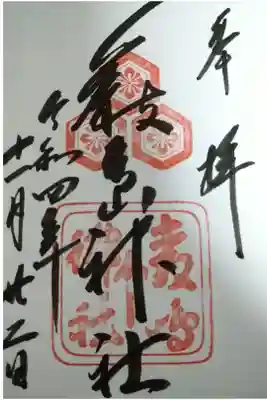 奉拝
嚴島神社
令和四年
十一月廿二日
嚴島
神社